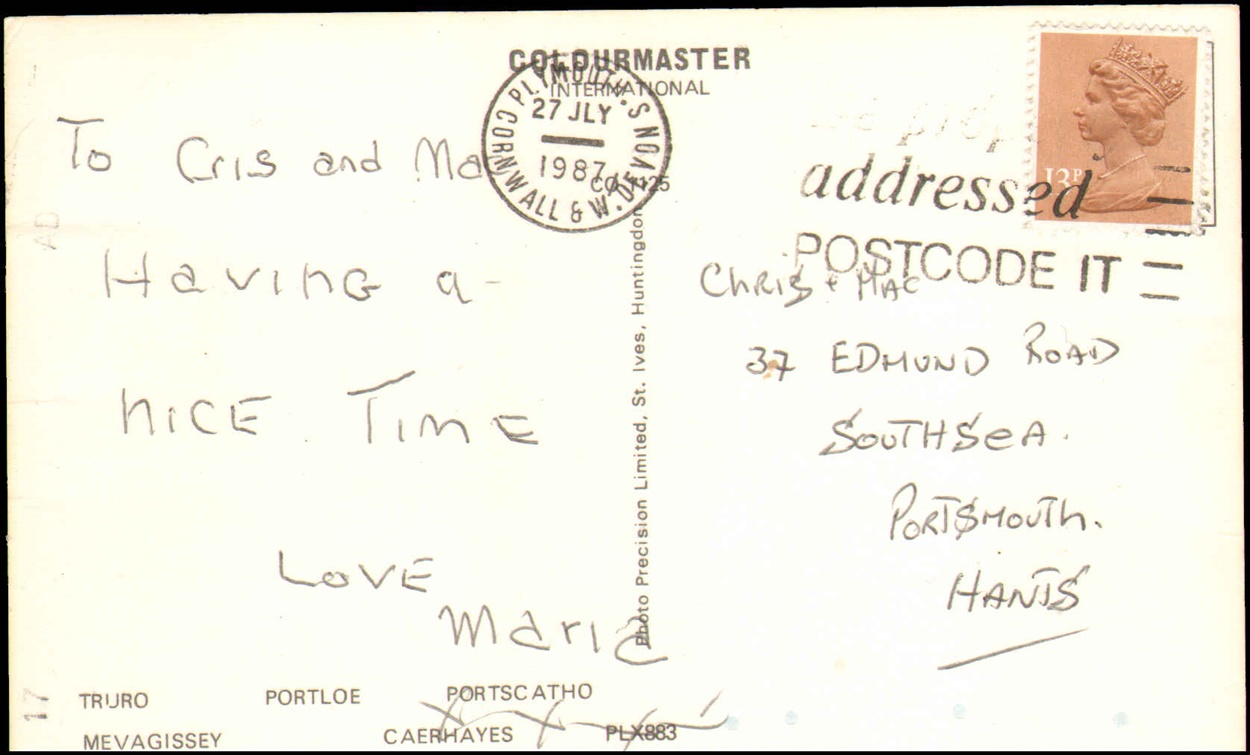 COLOURMASTER
INTERNATIONAL
PLYMOUTH. S
27 JLY
1987
CORNWALL & W. DEVON
13P
addressed
POSTCODE IT
To Cris and Mac
Having a
nICE TIME
LOVE
Maria
Photo Precision Limited, St. Ives, Huntingdon
ChRIS + MAC
37 EDMUND ROAD
SOUTHSeA.
PORTSMOUTh.
HANTS
TRURO PORTLOE PORTSCATHO
MEVAGISSEY CAERHAYES PLX883
17